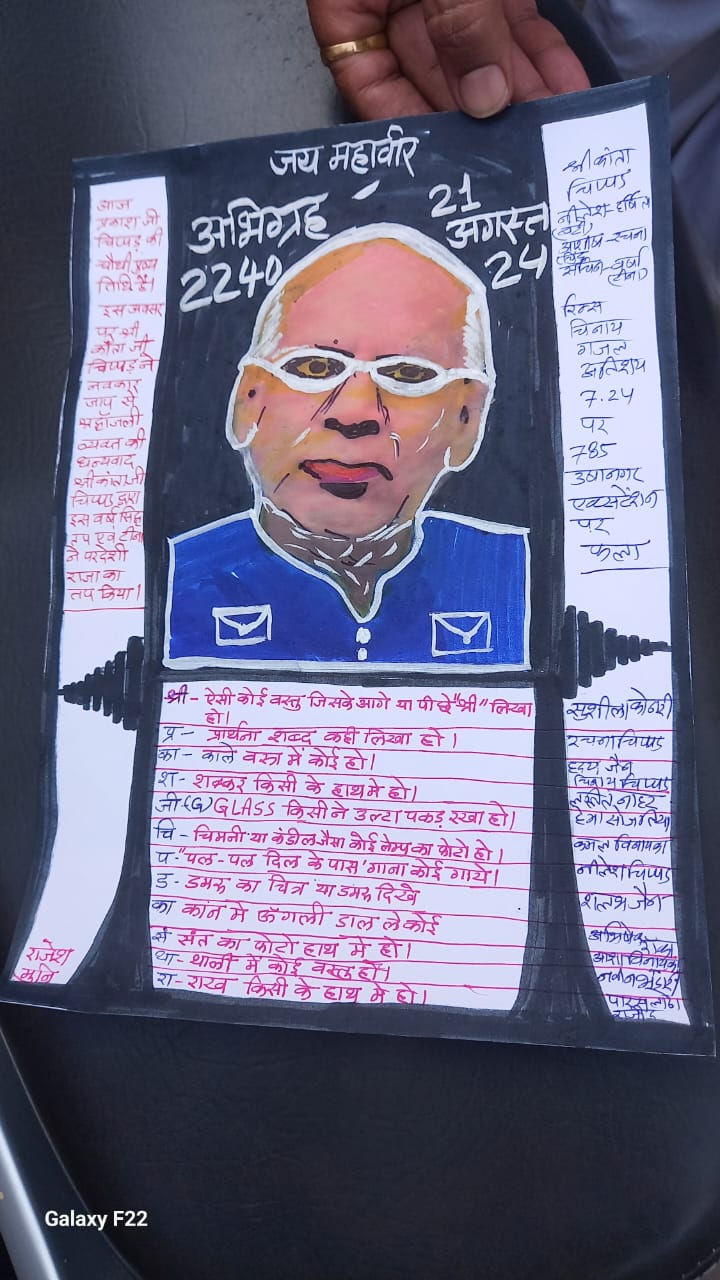 जय महावीर
अभिग्रह
2240
21
अगस्त
24
आज
प्रकाश जी
चिप्पड़ की
चौथी पुण्य
तिथि है।
इस अवसर
पर श्री
कांता जी
चिप्पड़ ने
नवकार
जाप से
श्रद्धांजली
व्यक्त की
धन्यवाद
श्रीकांताजी
चिप्पड़ द्वारा
इस वर्ष सिद्धि
तप एवं टीना
ने परदेशी
राजा का
तप किया।
राजेश
मुनि
श्रीकांता
चिप्पड़
नीतेश-हर्षिता
आशीष-रचना
सचिन-वर्षा
(टीना)
रिन्स
चिनाय
गजल
अतिशय
7.24
पर
785
उषानगर
एक्सटेंशन
पर
फला
श्री - ऐसी कोई वस्तु जिसके आगे या पीछे "श्री" लिखा
हो।
प्र - प्रार्थना शब्द कहीं लिखा हो।
का - काले वस्त्र में कोई हो।
श - शक्कर किसी के हाथ मे हो।
जी (G) GLASS किसीने उल्टा पकड़ रखा हो।
चि - चिमनी या कंडील जैसा कोई लेम्प का फोटो हो।
प - "पल-पल दिल के पास" गाना कोई गाये।
ड - डमरू का चित्र या डमरू दिखे
का कान मे ऊँगली डाल ले कोई
सं संत का फोटो हाथ मे हो।
था - थाली में कोई वस्तु हो।
रा - राख किसी के हाथ मे हो।
सुशीला कोठारी
रचना चिप्पड़
हृदय जैन
चिनाय चिप्पड़
ललीत नाहर
हेमा सोजतिया
कमल विनायका
नीतेश चिप्पड़
शलभ जैन
अभिषेक
आशा विनायका
नवीन भंडारी
पारस लोढ़ा